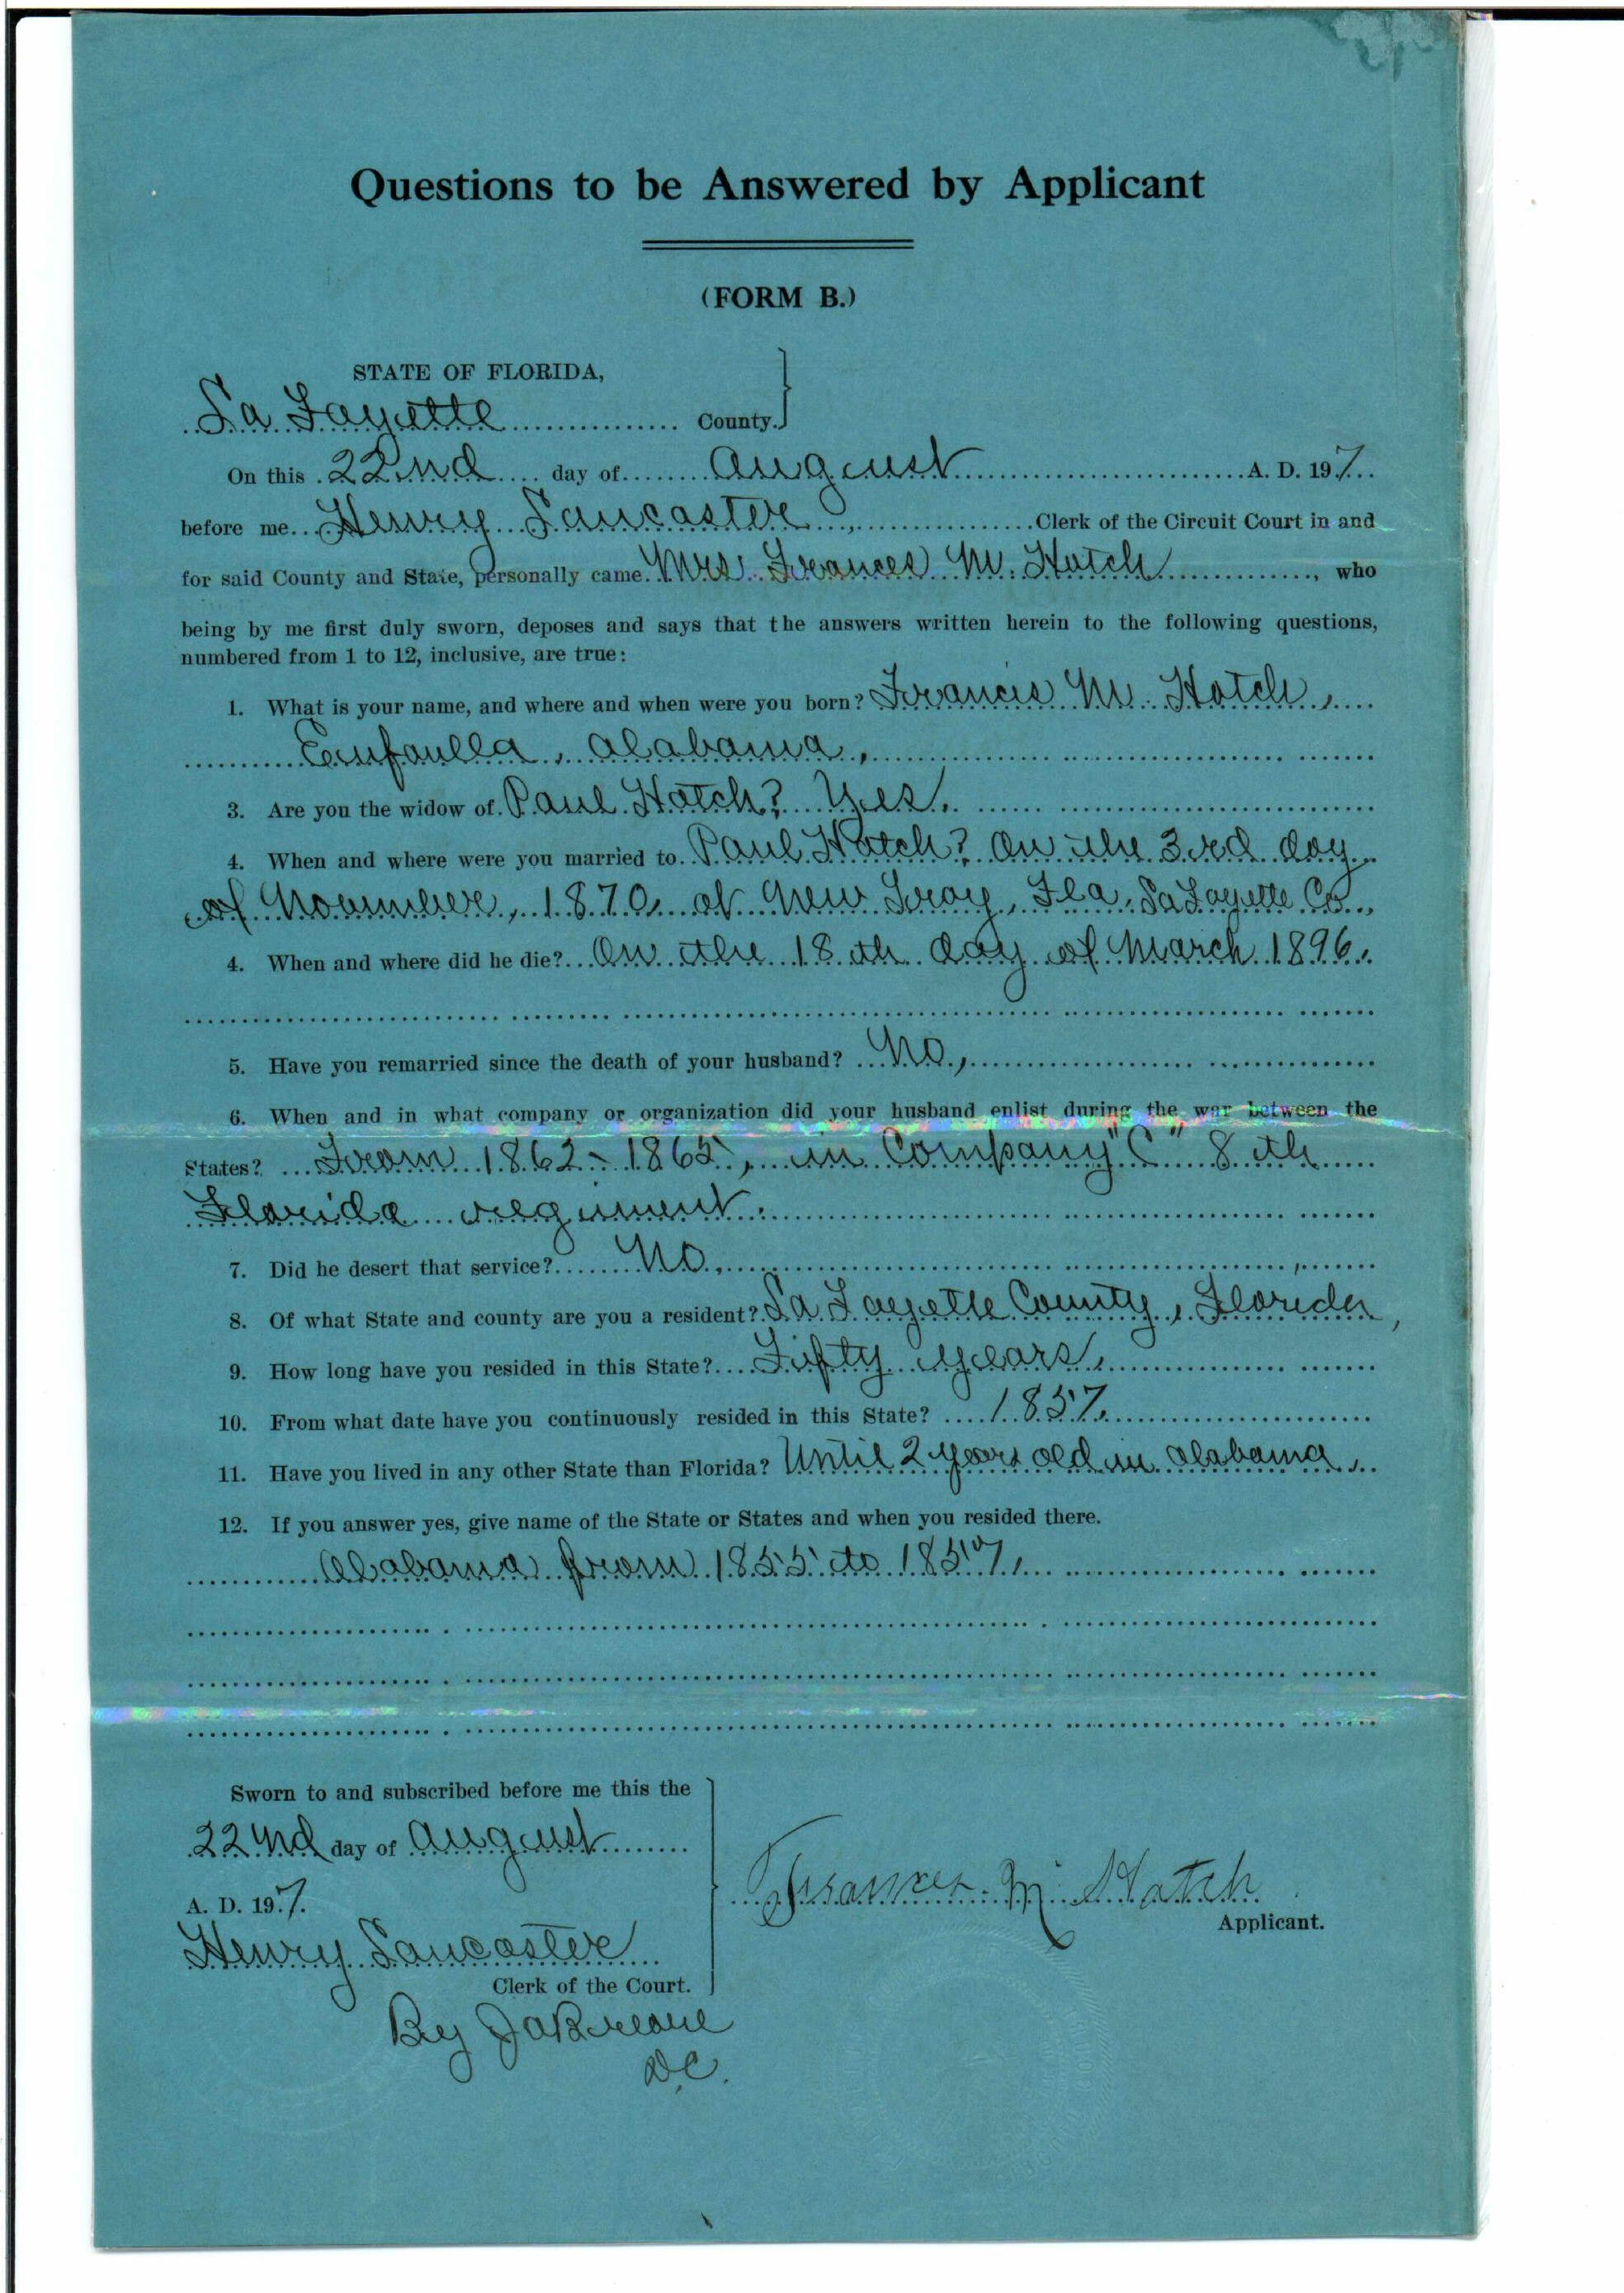 Questions to be Answered by Applicant
(FORM B.)
STATE OF FLORIDA,
La Fayette County.
On this 22nd day of August A. D. 197
before me Henry Lancaster, Clerk of the Circuit Court in and
for said County and State, personally came Mrs. Frances M. Hatch, who
being by me first duly sworn, deposes and says that the answers written herein to the following questions,
numbered from 1 to 12, inclusive, are true:
1. What is your name, and where and when were you born? Francis M. Hatch,
Eufaulla, Alabama,
3. Are you the widow of Paul Hatch? Yes.
4. When and where were you married to Paul Hatch? On the 3rd day
of Noumber, 1870, at New Troy, Fla, La Fayette Co.,
4. When and where did he die? On the 18th day of March 1896.
5. Have you remarried since the death of your husband? No,
6. When and in what company or organization did your husband enlist during the war between the
States? From 1862-1865, in Company "C" 8th
Florida regiment.
7. Did he desert that service? No,
8. Of what State and county are you a resident? La Fayette County, Florida,
9. How long have you resided in this State? Fifty years,
10. From what date have you continuously resided in this State? 1857,
11. Have you lived in any other State than Florida? Until 2 years old in Alabama,
12. If you answer yes, give name of the State or States and when you resided there.
Alabama from 1855 to 1857,
Sworn to and subscribed before me this the
22nd day of August
A. D. 197.
Frances M Hatch
Applicant.
Henry Lancaster
Clerk of the Court.
By
D.C.